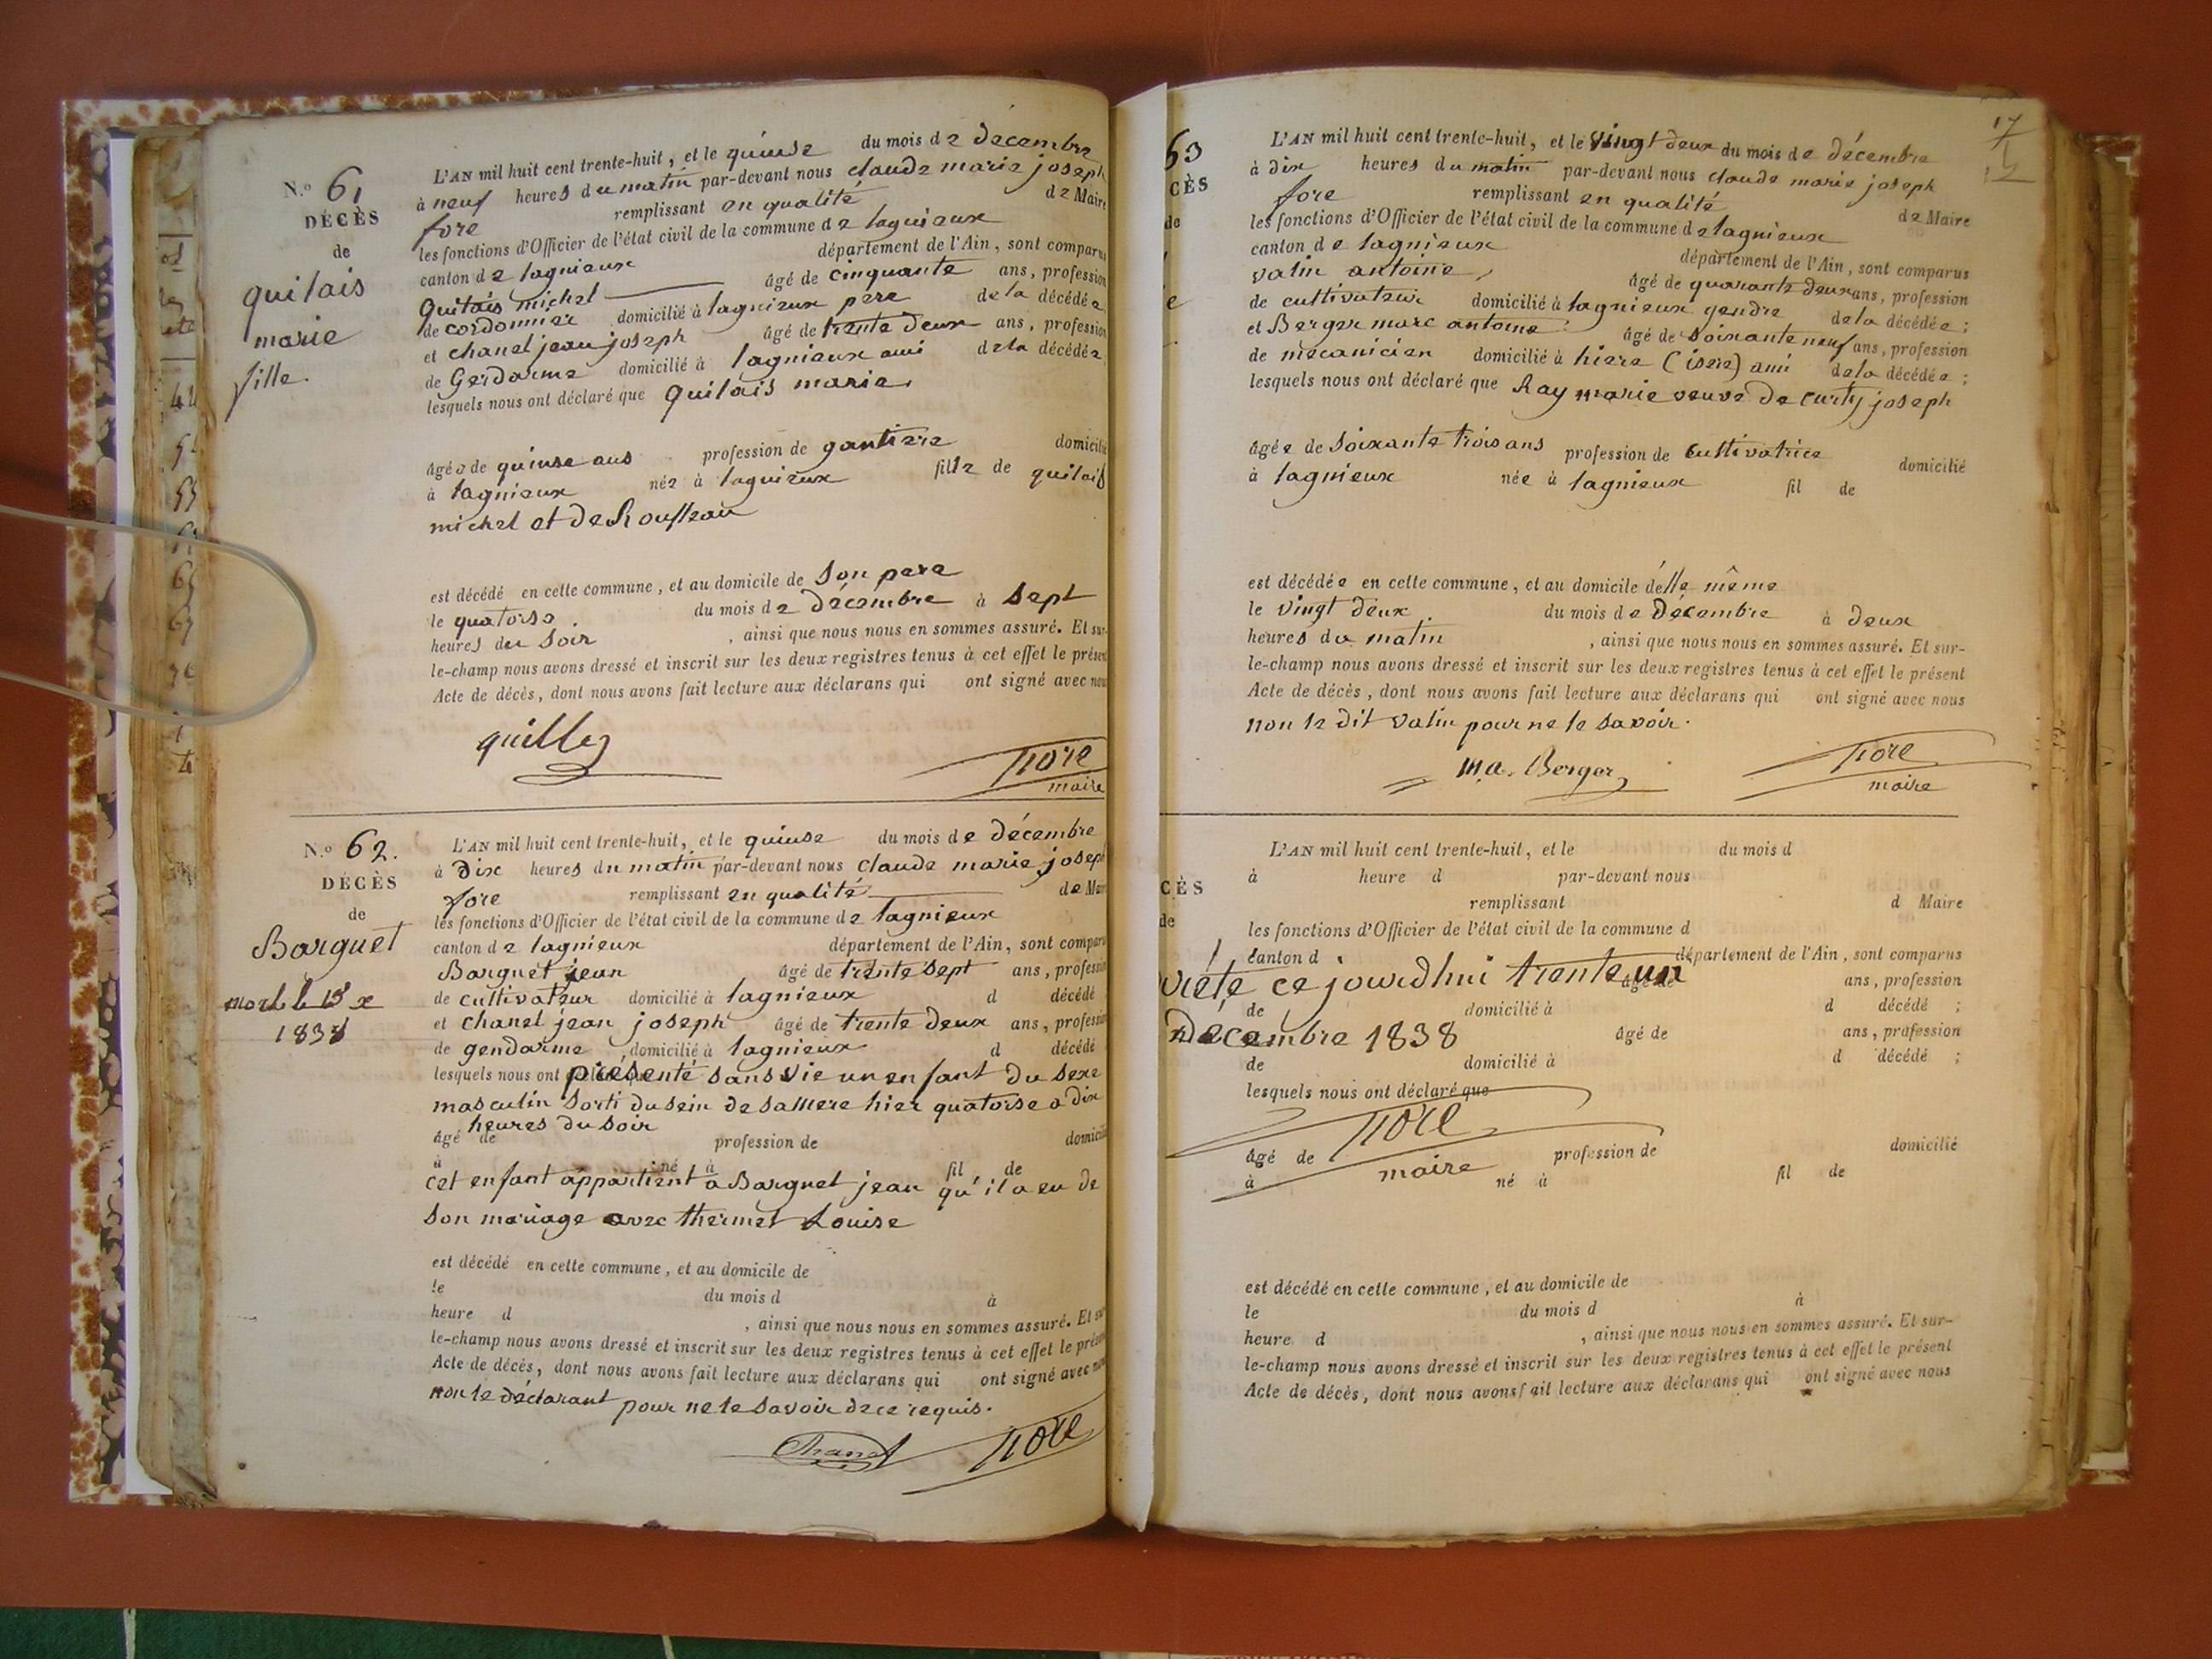 N.o 61
DÉCÈS
de
quitais
marie
fille.
L'AN mil huit cent trente-huit, et le quinse du mois de decembre
à neuf heures du matin par-devant nous claude marie joseph
fore remplissant en qualité de Maire
les fonctions d'Officier de l'état civil de la commune de lagnieux
canton de lagnieux département de l'Ain, sont comparus
Quitais michel âgé de cinquante ans, profession
de cordonnier domicilié à lagnieux pere de la décédée
et chanel jean joseph âgé de trente deux ans, profession
de Gerdarme domicilié à lagnieux ami de la décédée
lesquels nous ont déclaré que quitais marie
âgée de quinse ans profession de gantiere domicilié
à lagnieux née à lagnieux fille de quitais
michel et de Rousseau
est décédé en cette commune, et au domicile de son pere
le quatorse du mois de décembre à sept
heures du soir, ainsi que nous nous en sommes assuré. Et sur-
le-champ nous avons dressé et inscrit sur les deux registres tenus à cet effet le présent
Acte de décès, dont nous avons fait lecture aux déclarans qui ont signé avec nous
fore
maire
N.o 62.
DÉCÈS
de
Barguet
1838
L'AN mil huit cent trente-huit, et le quinse du mois de décembre
à Dix heures du matin par-devant nous claude marie joseph
fore remplissant en qualité de Maire
les fonctions d'Officier de l'état civil de la commune de lagnieux
canton de lagnieux département de l'Ain, sont comparus
Barguet jean âgé de trente sept ans, profession
de cultivateur domicilié à lagnieux d décédé
et chanel jean joseph âgé de trente deux ans, profession
de gendarme, domicilié à lagnieux d décédé
lesquels nous ont présenté sans vie un enfant du sexe
masculin sorti du sein de sa mere hier quatorse a dix
heures du soir
âgé de profession de domicilié
à né à fil de
cet enfant appartient a Barguet jean qu'il a eu de
son mariage avec thermet Louise
est décédé en cette commune, et au domicile de
le du mois d à
heure d, ainsi que nous nous en sommes assuré. Et sur
le-champ nous avons dressé et inscrit sur les deux registres tenus à cet effet le présent
Acte de décès, dont nous avons fait lecture aux déclarans qui ont signé avec nous
non le déclarant pour ne le savoir de ce requis.
Chanel fore
17
63
CÈS
de
L'AN mil huit cent trente-huit, et le Vingt deux du mois de décembre
à dix heures du matin par-devant nous claude marie joseph
fore remplissant en qualité de Maire
les fonctions d'Officier de l'état civil de la commune de lagnieux
canton de lagnieux département de l'Ain, sont comparus
vatin antoine, âgé de quarante deux ans, profession
de cultivateur domicilié à lagnieux gendre de la décédée ;
et Berger marc antoine âgé de soixante neuf ans, profession
de mecanicien domicilié à hiere (isere) ami de la décédée ;
lesquels nous ont déclaré que Ray marie veuve de curty joseph
âgée de soixante trois ans profession de Cultivatrice domicilié
à lagnieux née à lagnieux fil de
est décédée en cette commune, et au domicile d'elle même
le vingt deux du mois de Décembre à deux
heures du matin, ainsi que nous nous en sommes assuré. Et sur-
le-champ nous avons dressé et inscrit sur les deux registres tenus à cet effet le présent
Acte de décès, dont nous avons fait lecture aux déclarans qui ont signé avec nous
non le dit vatin pour ne le savoir.
m.a. Berger fore
maire
CÈS
de
L'AN mil huit cent trente-huit, et le du mois d
à heure d par-devant nous
remplissant d Maire
les fonctions d'Officier de l'état civil de la commune d
canton d département de l'Ain, sont comparus
rrété ce jourdhui trente un âgé de ans, profession
de domicilié à d décédé ;
Décembre 1838 âgé de ans, profession
de domicilié à d décédé ;
lesquels nous ont déclaré que
fore
âgé de profession de domicilié
maire
à né à fil de
est décédé en cette commune, et au domicile de
le du mois d à
heure d, ainsi que nous nous en sommes assuré. Et sur-
le-champ nous avons dressé et inscrit sur les deux registres tenus à cet effet le présent
Acte de décès, dont nous avons fait lecture aux déclarans qui ont signé avec nous